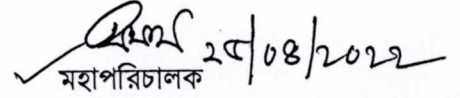 ২৫/০৪/২০২২
মহাপরিচালক